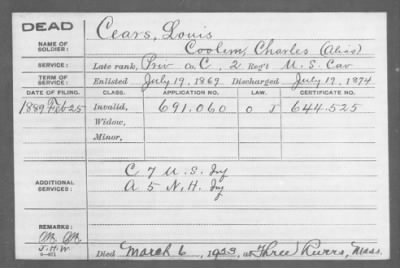 DEAD
Cears, Louis
NAME OF SOLDIER:
Coolem, Charles (Alias)
SERVICE: Late rank, Priv Co. C, 2 Reg't U.S. Cav
TERM OF SERVICE: Enlisted July 19, 1869 Discharged July 19, 1874
DATE OF FILING. CLASS. APPLICATION NO. LAW. CERTIFICATE NO.
1889 Feb 25 Invalid, 691.060 O J 644.525
Widow,
Minor,
C 7 U.S. Iy
ADDITIONAL SERVICES: A 5 N.H. Iy
REMARKS:
J.H.W.
Died March 6, 1923, at Three Rivers, Mass.